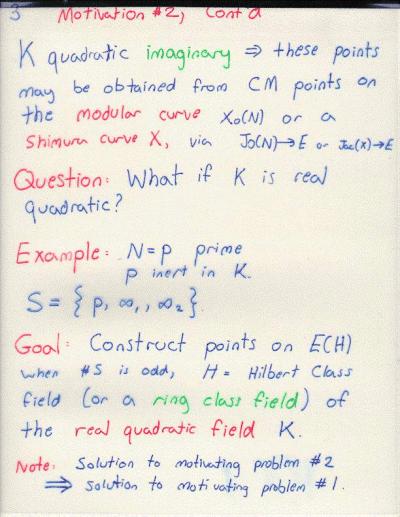 3 Motivation #2, Cont'd
K quadratic imaginary ⇒ these points
may be obtained from CM points on
the modular curve X₀(N) or a
Shimura curve X, via J₀(N)→E or Jac(X)→E
Question: What if K is real
quadratic?
Example: N=p prime
p inert in K.
S = { p, ∞₁, ∞₂}.
Goal: Construct points on E(H)
when #S is odd, H = Hilbert Class
field (or a ring class field) of
the real quadratic field K.
Note: Solution to motivating problem #2
⟹ Solution to motivating problem #1.